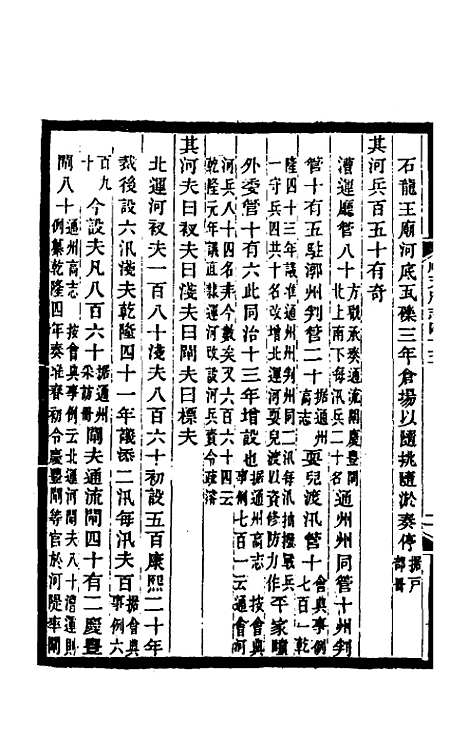 石龍王廟河底瓦礫三年倉揚以隨挑隨淤奏停據戶部冊
其河兵百五十有奇
漕運廳管八十方戰承奏通流閘慶豐閘北上南下每汛兵二十名通州州同管十州判
管十有五駐漷州判管二十據通州高志耍兒渡汛管十會典事例七百一乾
隆四十三年議准通州州同二汛每汛摘撥戰兵一守兵四共十名增改北運河耍兒渡以資修防力作平家疃
外委管十有六此同治三年增設也據通州高志 按會典事例七百一云通會河
河兵八十四名未今數矣又六百六十四云乾隆元年議直隸運河改設河兵責令疏濬
其河夫曰衩夫曰淺夫曰閘夫曰標夫
北運河衩夫一百八十淺夫八百六十初設五百康熙二十年
裁後設六汛淺夫乾隆四十一年議添二汛每汛夫百據會典事例六
百九十今設夫凡八百六十據通州采訪冊閘夫通流閘四十有二慶豐
閘八十通州高志 按會典事例云北運河閘夫八十漕運則例纂乾隆四年奏准春初令慶豐閘等官於河隄率閘